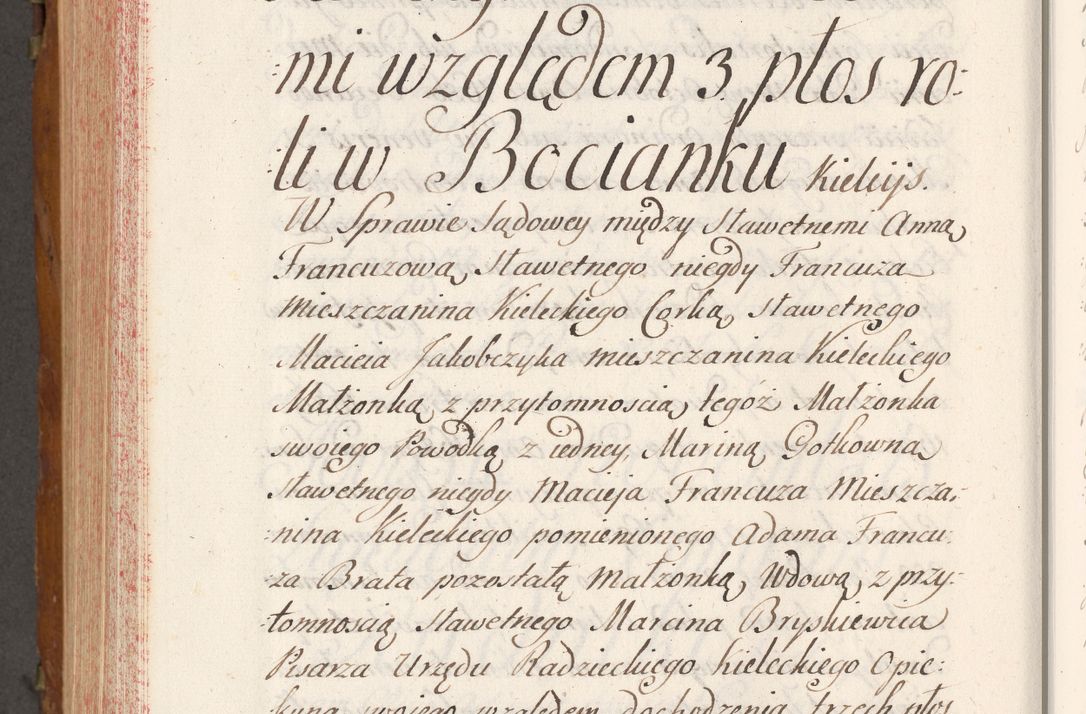 mi względem 3. płos ro:
li w Bocianku Kielcijs.
W Sprawie sądowey między sławetnemi Anną
Francuzową, sławetnego niegdy Francuza
Mieszczanina Kieleckiego Corką, sławetnego
Macieia Jakobczyka mieszczanina Kieleckiego
Małżonką, z przytomnoscią, tegóż Małżonka
swoiego Powodką z iedney, Mariną, Gołkowną
sławetnego niegdy Macieja Francuza Mieszcza:
:nina Kieleckiego pomienionego Adama Francu:
za Brata pozostałą Małżonką, Wdową, z przy:
:tomnoscią, sławetnego Marcina Bryskiewica
Pisarza Urzędu Radzieckiego Kieleckiego Opie:
kuna swoiego względem dochodzenia trzech płos